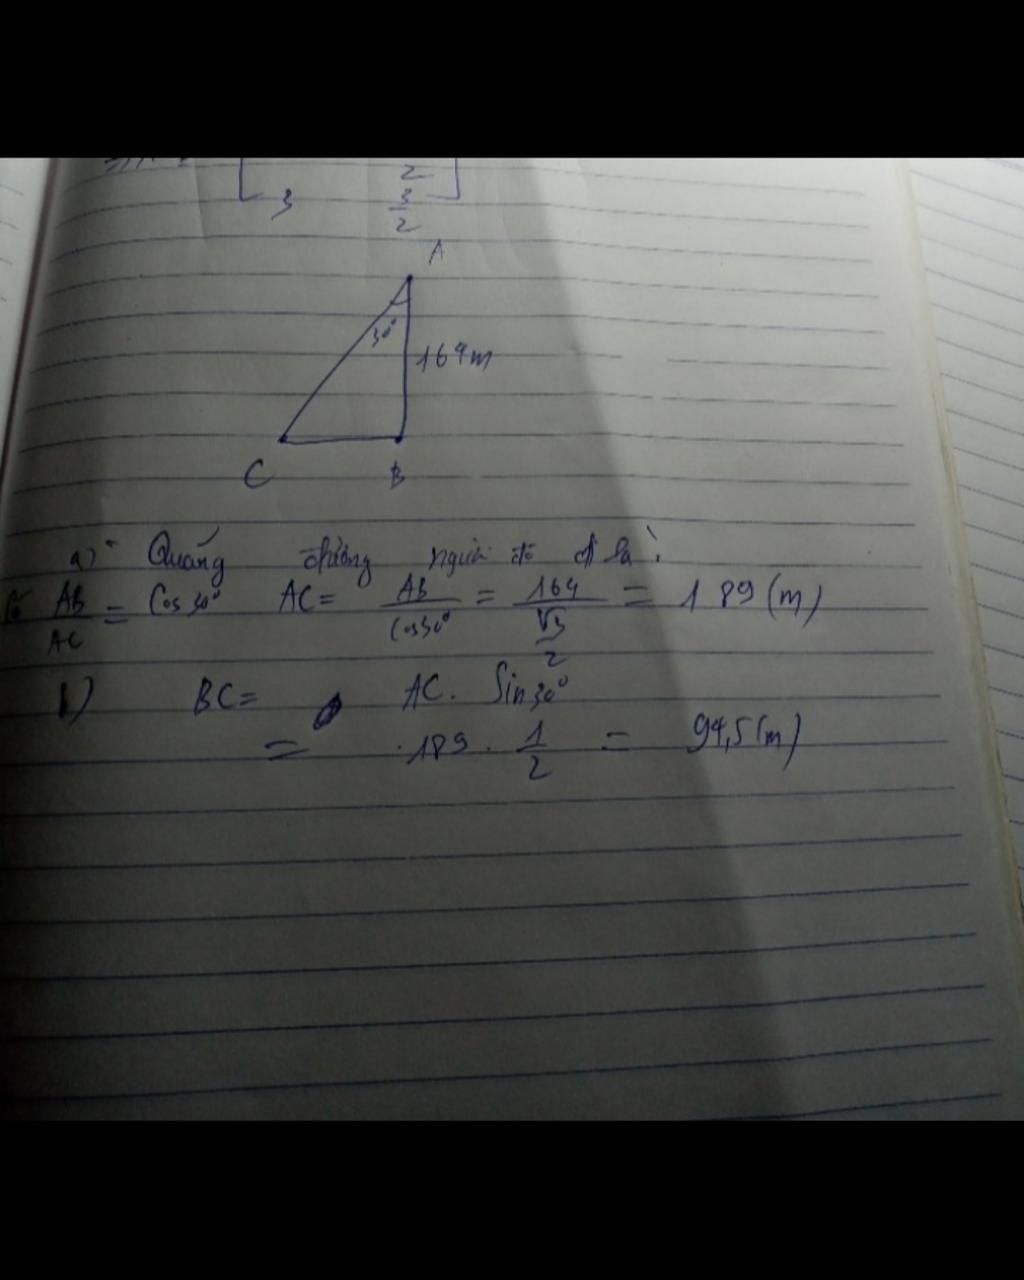 2
3 3/2
A
30°
164m
C B
a) Quãng đường người đó đi là:
Có AB/AC = Cos 30° AC = AB/Cos30° = 164/(√3/2) = 189 (m)
b) BC = AC. Sin 30°
= 189. 1/2 = 94,5 (m)